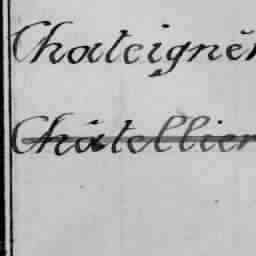 Chateignèr
Châtellier